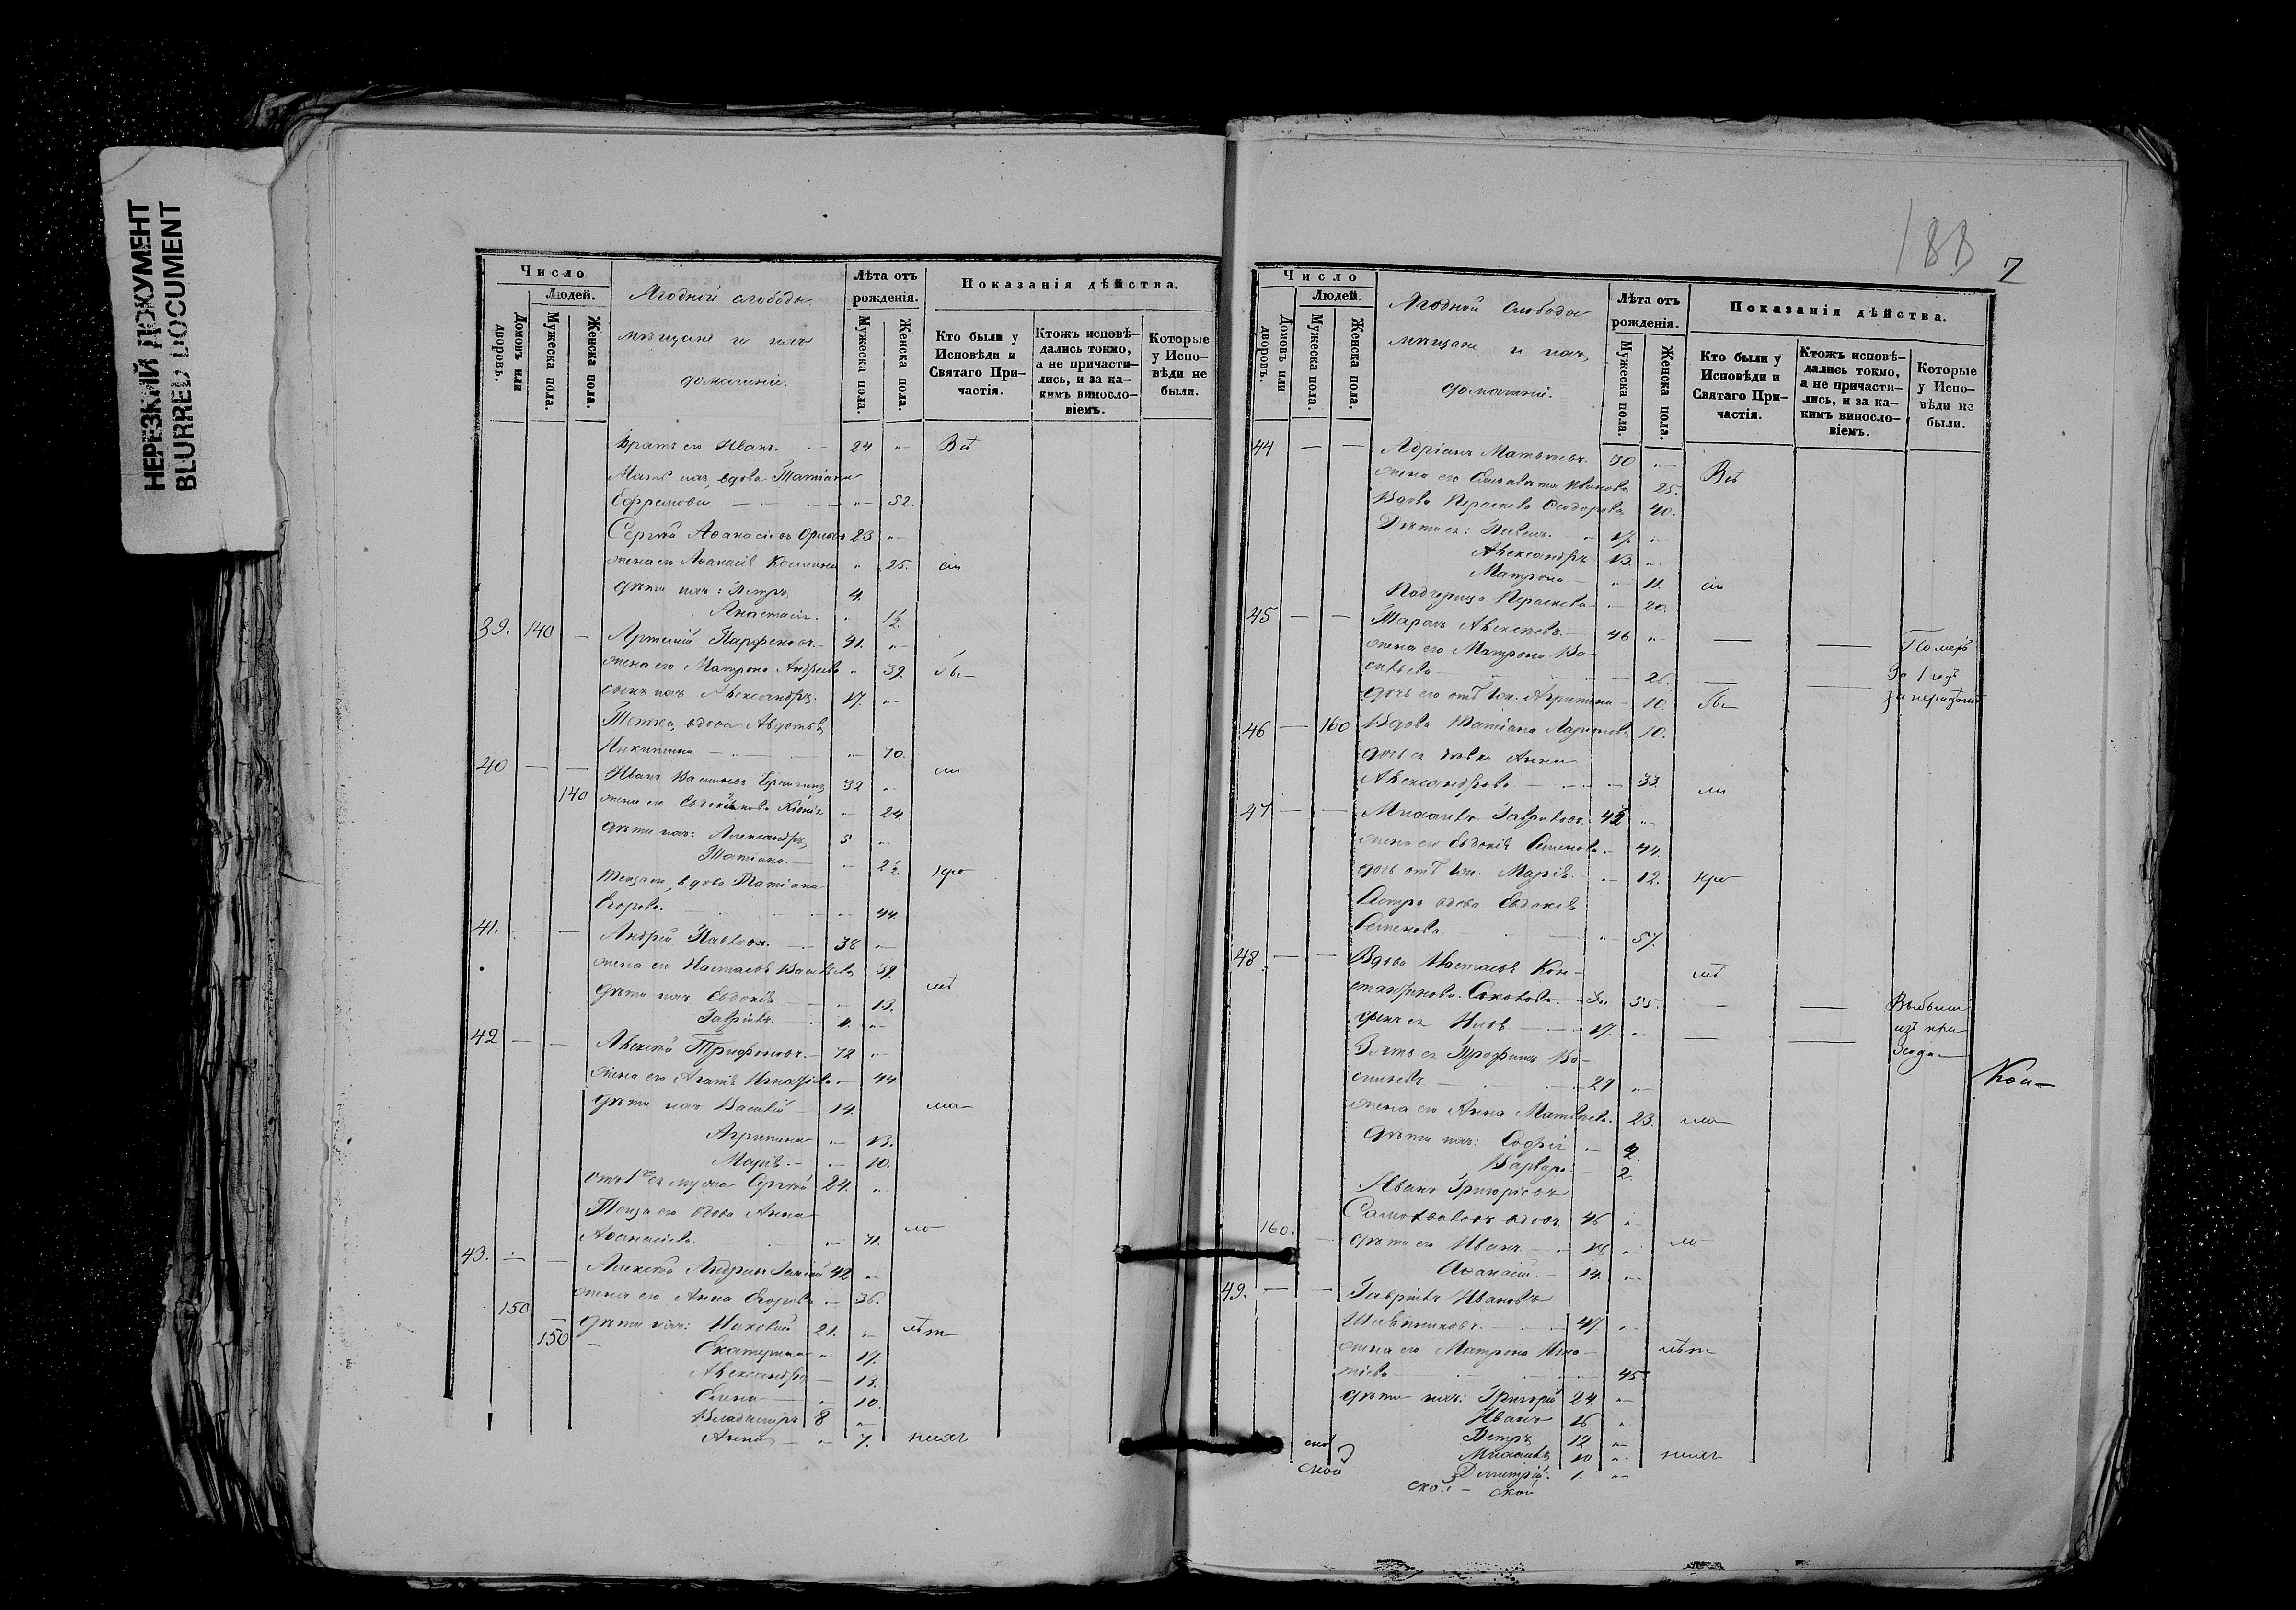 НЕРЕЗКИЙ ДОКУМЕНТ
BLURRED DOCUMENT
Число
Людей.
Домовъ или дворовъ.
Мужеска пола.
Женска пола.
Ягодной слободы
мѣщане и ихъ
домашніи.
Лѣта отъ рожденія.
Мужеска пола.
Женска пола.
Показанія дѣйства.
Кто были у Исповѣди и Святаго Причастія.
Ктожъ исповѣдались токмо, а не причастились, и за какимъ винословіемъ.
Которые у Исповѣди не были.
братъ его Иванъ. 24 Всѣ
Мать ихъ, вдова Татіана
Ефремова 52.
Сергѣй Аѳанасіевъ 23
жена его 25. сіи
дѣти ихъ: Петръ 4.
Анастасія. 1½
39. 140 Артемій Парфеновъ. 41.
жена его Матрона Андреева 39. бы
сынъ ихъ Александръ. 17.
Тетка, вдова Авдотья
Никитина 70.
40 Иванъ Васильевъ 32 ли
140 жена его 24.
дѣти ихъ: Александръ 5
Татіана. 2½
Теща его, вдова Татіана
Егорова. 44 про
41. Андрей Павловъ. 38
жена его Настасья Васильева 39.
дѣти ихъ Евдокія 13. лѣ
Гавріилъ.
42 Алексѣй Трифоновъ. 72
жена его Агапія Игнатьева 44
дѣти ихъ Василій 14. ма
Агрипина 13.
Марія. 10.
отъ 1го ея мужа Сергѣй 24.
Теща его вдова Анна
Аѳанасіева. 71. ло
43. Алексѣй 42
жена его Анна Егорова 36.
150
150 дѣти ихъ: 21. лѣт
Екатерина 17.
Александра 13.
Елена 10.
Владиміръ 8
Анна 7. нихъ
188 7
Число
Людей.
Домовъ или дворовъ.
Мужеска пола.
Женска пола.
Ягодной слободы
мѣщане и ихъ
домашніи.
Лѣта отъ рожденія.
Мужеска пола.
Женска пола.
Показанія дѣйства.
Кто были у Исповѣди и Святаго Причастія.
Ктожъ исповѣдались токмо, а не причастились, и за какимъ винословіемъ.
Которые у Исповѣди не были.
44 Адріанъ Матвѣевъ. 30
жена его Елисавета Иванова 25. Всѣ
Вдова Параскева Ѳеодорова 40.
Дѣти ея: Павелъ. 17.
Александръ 13.
Матрона 11. сіи
Падчерица Параскева 20.
45 Тарасъ Алексѣевъ 46 Померъ
жена его Матрона Ва-
сильева 26. За 1 годъ
дочь его отъ 1й. Агрипина 10. бы за нерадѣніе
46 160 Вдова Татіана Ларіонова 70.
дочь ея вдова Анна
Александрова 33. ли
47 Михаилъ Гавриловъ. 42
жена его Евдокія Семенова 44.
дочь отъ 1й. Марія 12. про
Сестра вдова Евдокія
Семенова 57.
48. Вдова Настасья Кон-
стантинова Соколова. 55. лѣ Выбыли
сынъ ея 17. изъ при-
Зять ея Трофимъ Ва- хода
сильевъ 27
жена его Анна Матвѣева. 23. ма
дѣти ихъ: Софія 4
Варвара 2
Иванъ Григорьевъ
Самохваловъ вдовъ. 46
160. дѣти его Иванъ. 18 ло
Аѳанасій. 14.
49. Гавріилъ Ивановъ
47
жена его Матрона Игна- лѣт
тіева 45
дѣти ихъ: Григорій 24.
Иванъ 16
Петръ 12
Михаилъ 10 нихъ
Димитрій. 1.
ской
ской ской
Кои